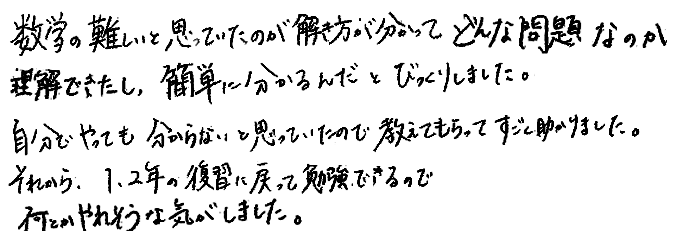 数学の難しいと思っていたのが解き方が分かってどんな問題なのか
理解できたし、簡単に分かるんだとびっくりしました。
自分でやっても分からないと思っていたので教えてもらってすごく助かりました。
それから、1、2年の復習に戻って勉強できるので
何とかやれそうな気がしました。